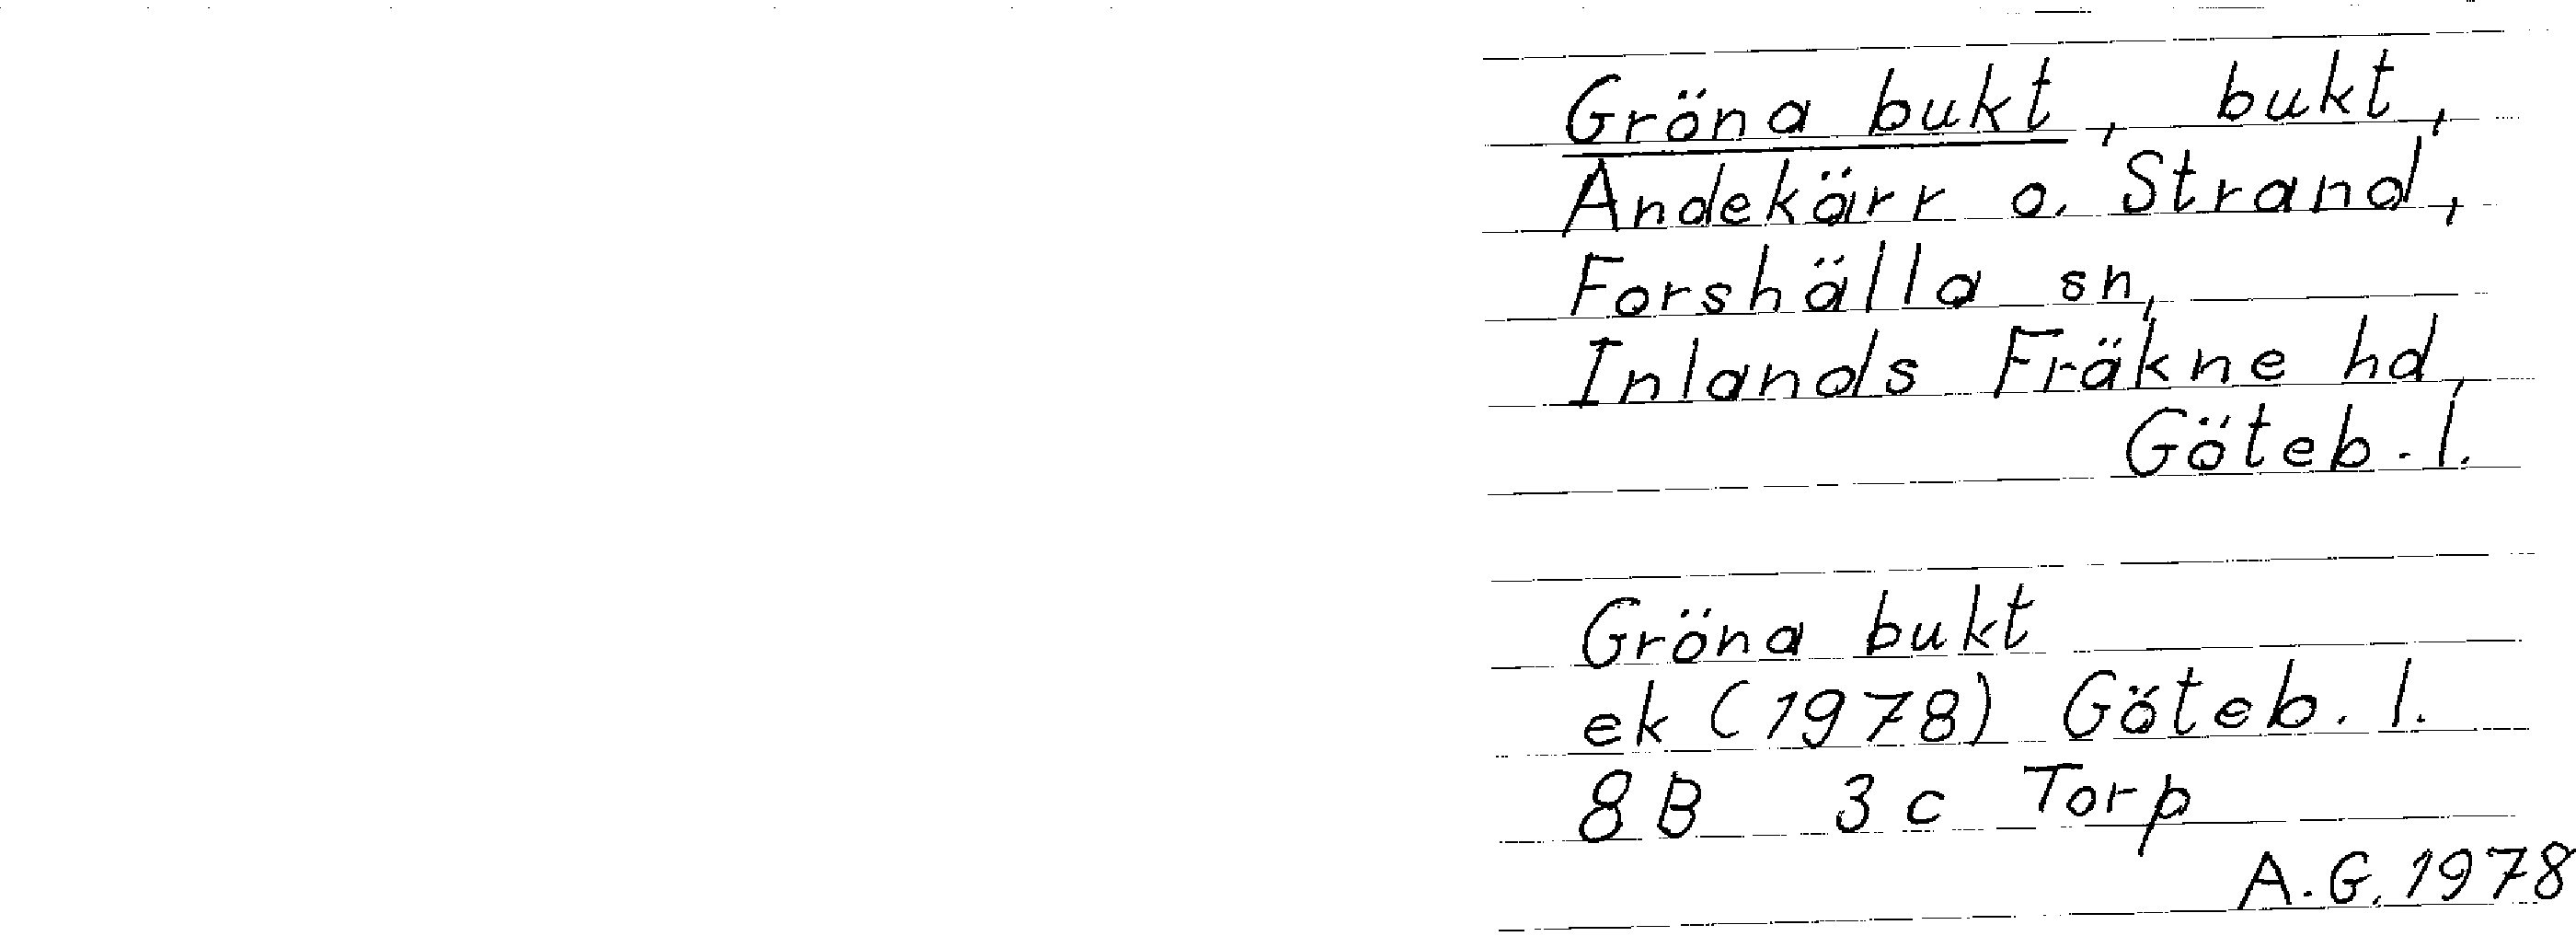 Gröna bukt, bukt,
Andekärr o. Strand,
Forshälla sn,
Inlands Fräkne hd,
Göteb. l.
Gröna bukt
ek (1978) Göteb. l.
8B 3c Torp
A.G. 1978